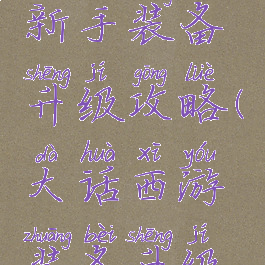 新手装备
shēng jí gōng lüè
升级攻略(
dà huà xī yóu
大话西游
zhuāng bèi shēng jí
装备升级